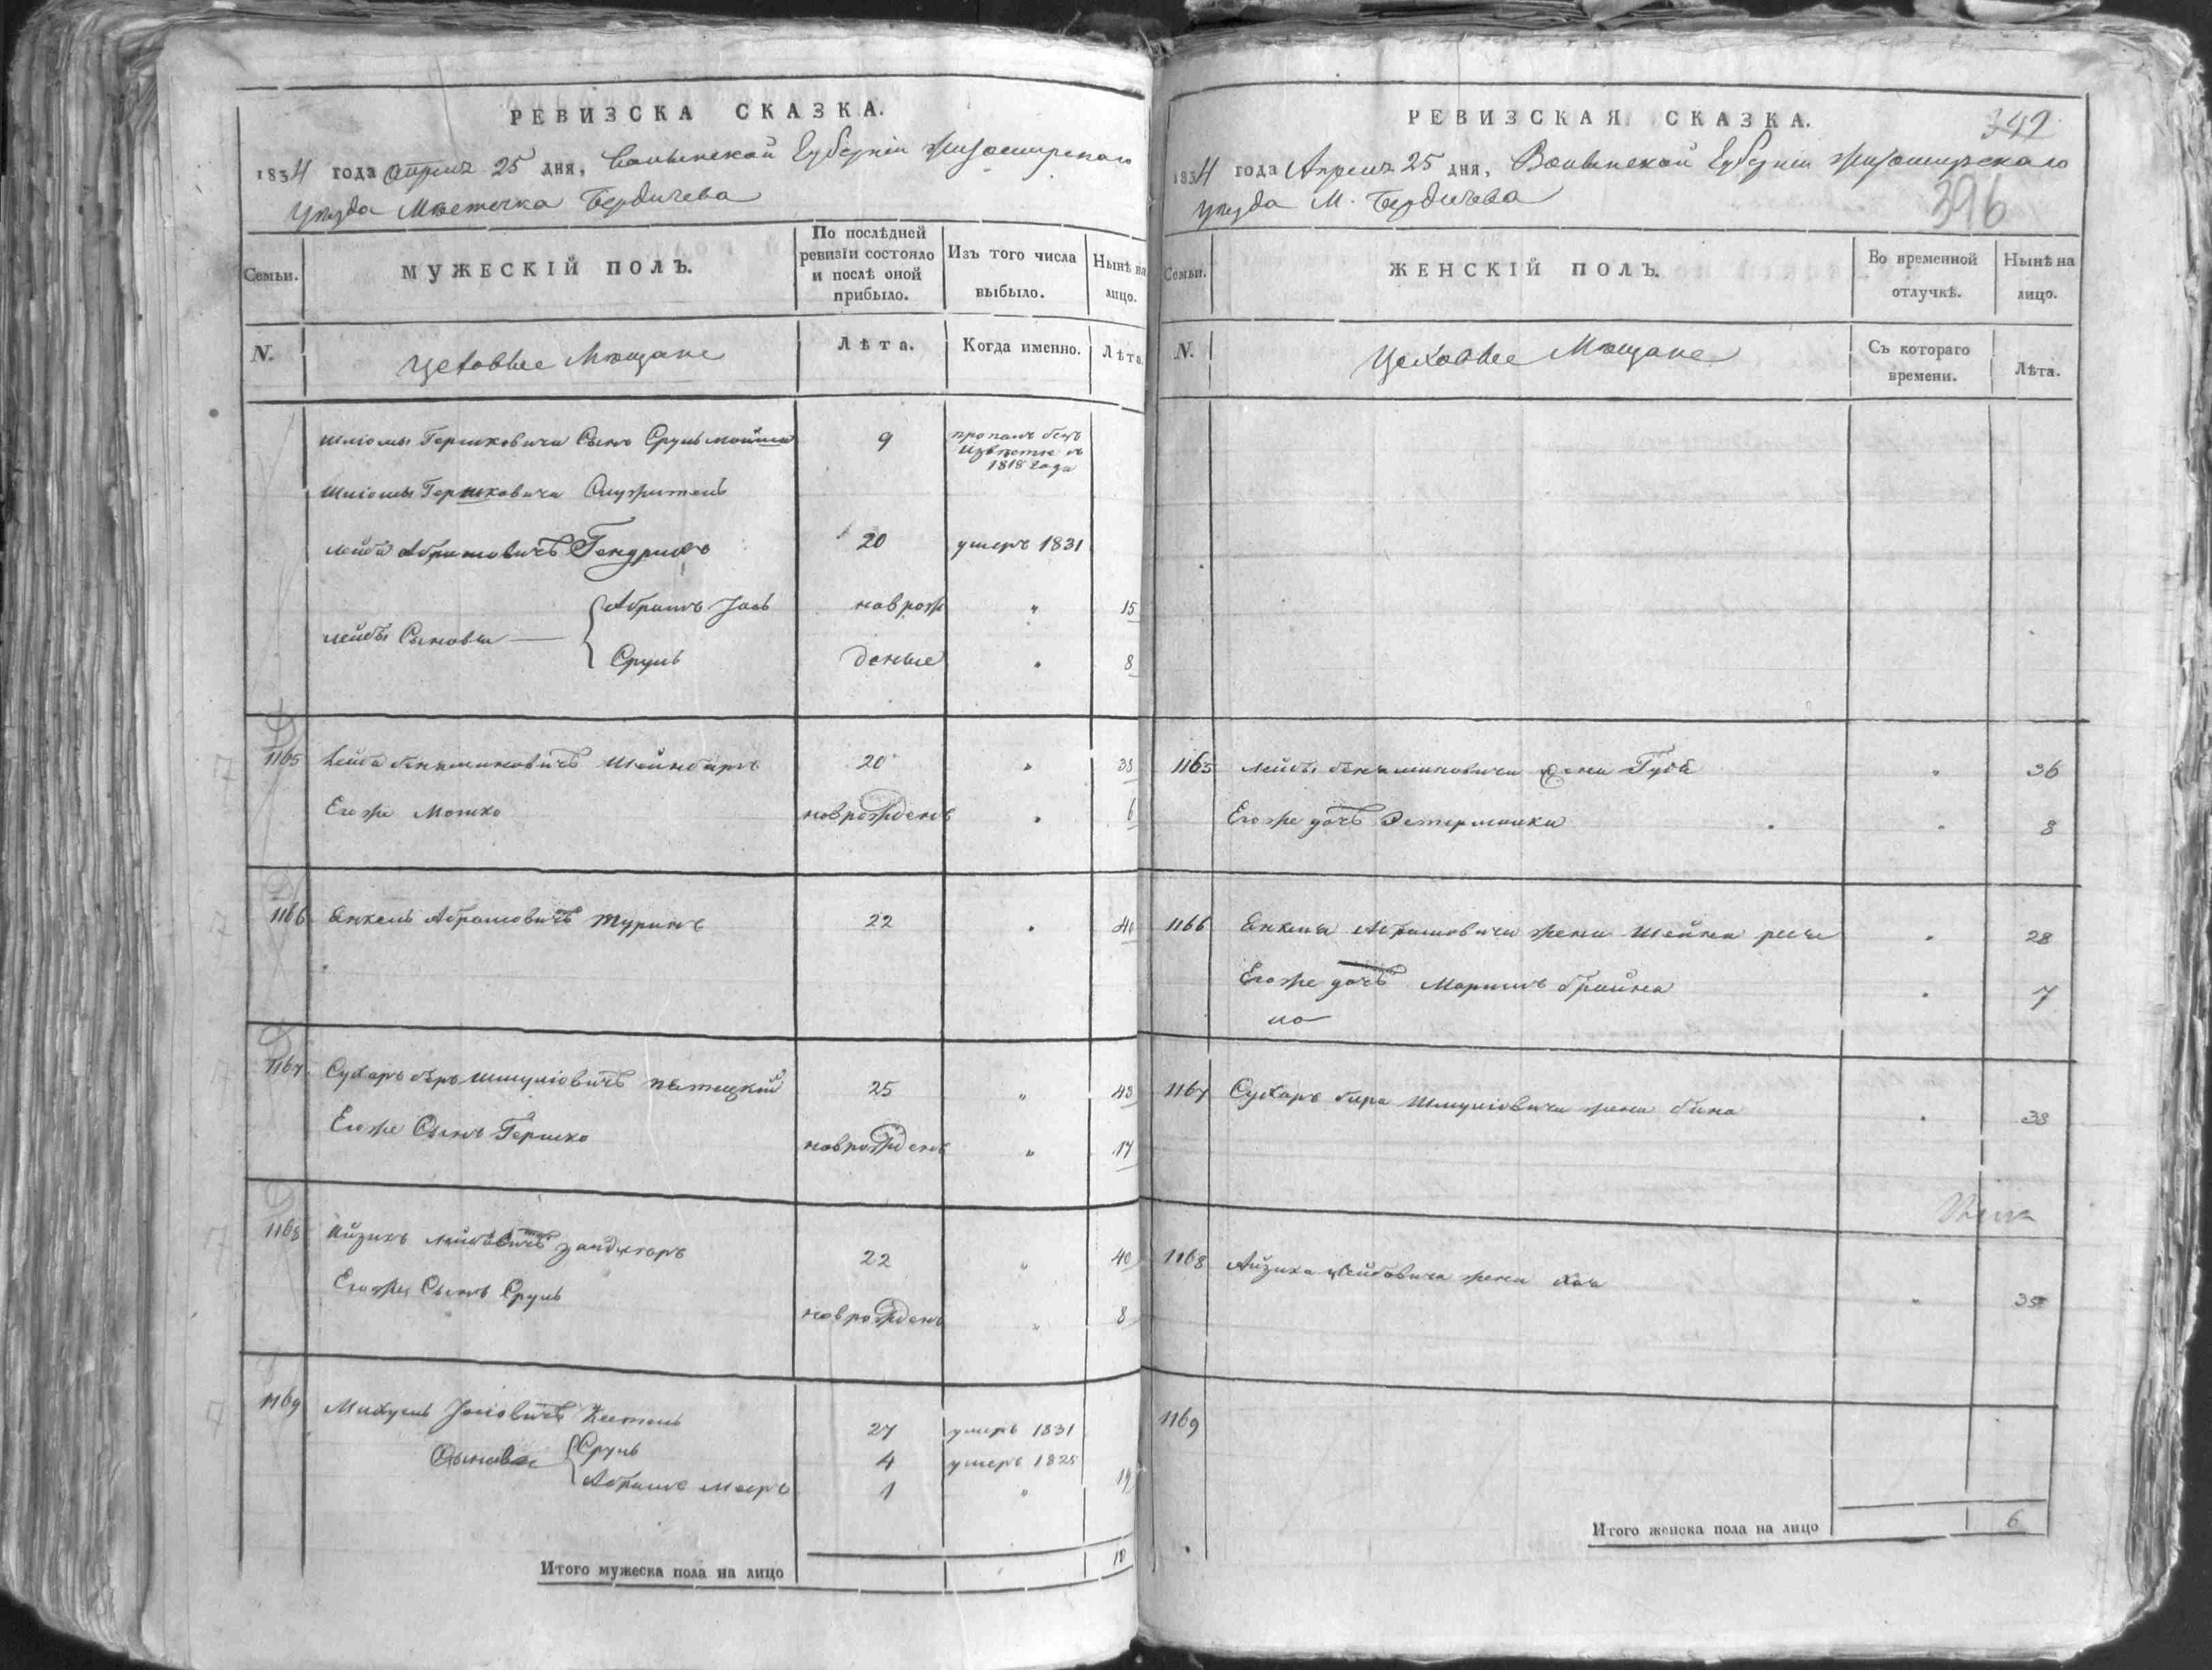 РЕВИЗСКА СКАЗКА.
1834 года Апреля 25 дня, Волынской Губернiи Житомирскаго
уѣзда Мѣстечка Бердичева
Семьи.
МУЖЕСКIЙ ПОЛЪ.
По послѣдней ревизiи состояло и послѣ оной прибыло.
Изъ того числа выбыло.
Нынѣ на лицо.
N.
Цеховые Мѣщане
Лѣта.
Когда именно.
Лѣта.
Шлiомы Гершковича Сынъ Сруль мойша 9 пропалъ безъ
Извѣстно въ
1818 года
Шлiомы Гершковича Служитель
лейба Абрамовичъ 20 умеръ 1831
Абрамъ Iось новрож " 15
лейбы Сыновья
Сруль денные " 8
1165 Лейба бенъяминовичъ 20 " 38
Его же Мошко новрожденъ " 6
1166 Янкель Абрамовичъ Туринъ 22 " 40
1167 Сухаръ беръ Шмулiовичъ 25 " 43
Его же Сынъ Гершко новрожденъ " 17
1168 Айзикъ лейбовичъ 22 " 40
Его же Сынъ Сруль новрожденъ " 8
1169 Михуель Iосiовичъ 27 умеръ 1831
Сыновья Сруль 4 умеръ 1825
Абрамъ Мееръ 1 " 19
Итого мужеска пола на лицо 10
РЕВИЗСКАЯ СКАЗКА.
342
1834 года Апреля 25 дня, Волынской Губернiи Житомирскаго
396
уѣзда М. Бердичева
Семьи.
ЖЕНСКIЙ ПОЛЪ.
Во временной отлучкѣ.
Нынѣ на лицо.
N.
Цеховые Мѣщане
Съ котораго времени.
Лѣта.
1165 Лейбы бенъяминовича жена " 36
Его же дочь " 8
1166 Янкеля Абрамовича жена Шейна " 28
Его же дочь " 7
1167 Сухаръ бера Шмулiовича жена " 38
1168 Айзика Лейбовича жена Хая " 35
1169
Итого женска пола на лицо 6